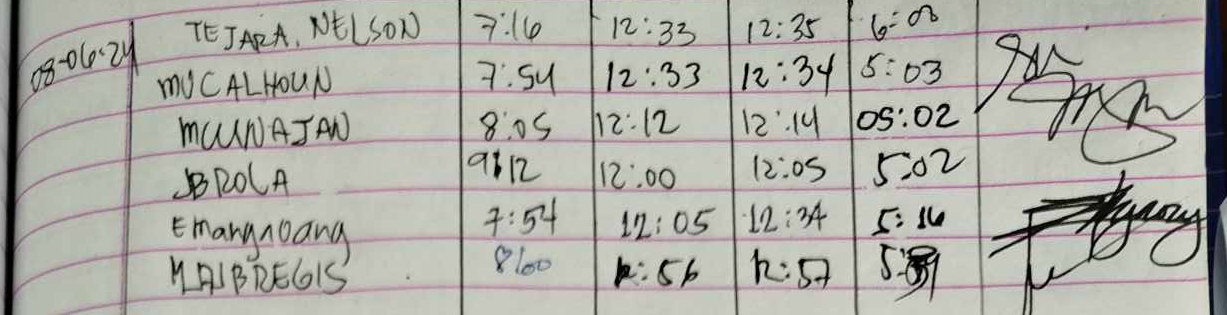 08-06-24 TEJARA, NELSON 7:16 12:33 12:35 6:03
MVCALHOUN 7:54 12:33 12:34 5:03
8:05 12:12 12:14 05:02
JBROLA 9:12 12:00 12:05 5:02
Emangnoang 7:54 12:05 12:34 5:16
8:00 12:56 12:57